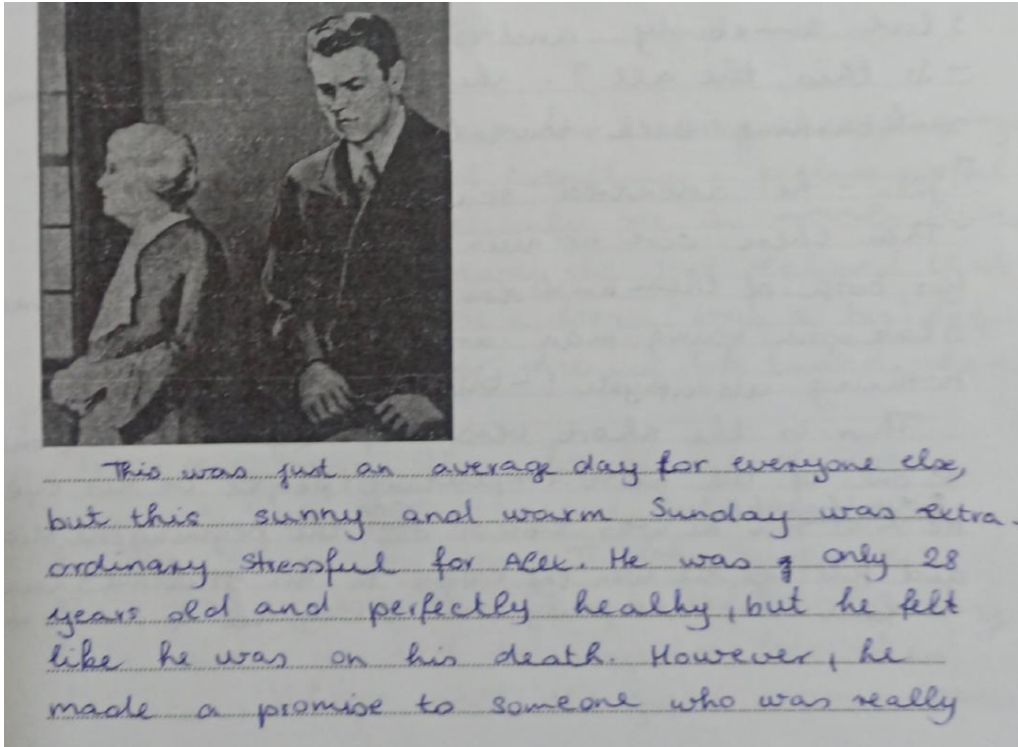 This was just an average day for everyone else,
but this sunny and warm Sunday was extra-
ordinary stressful for Alek. He was only 28
years old and perfectly healhy, but he felt
like he was on his death. However, he
made a promise to someone who was really